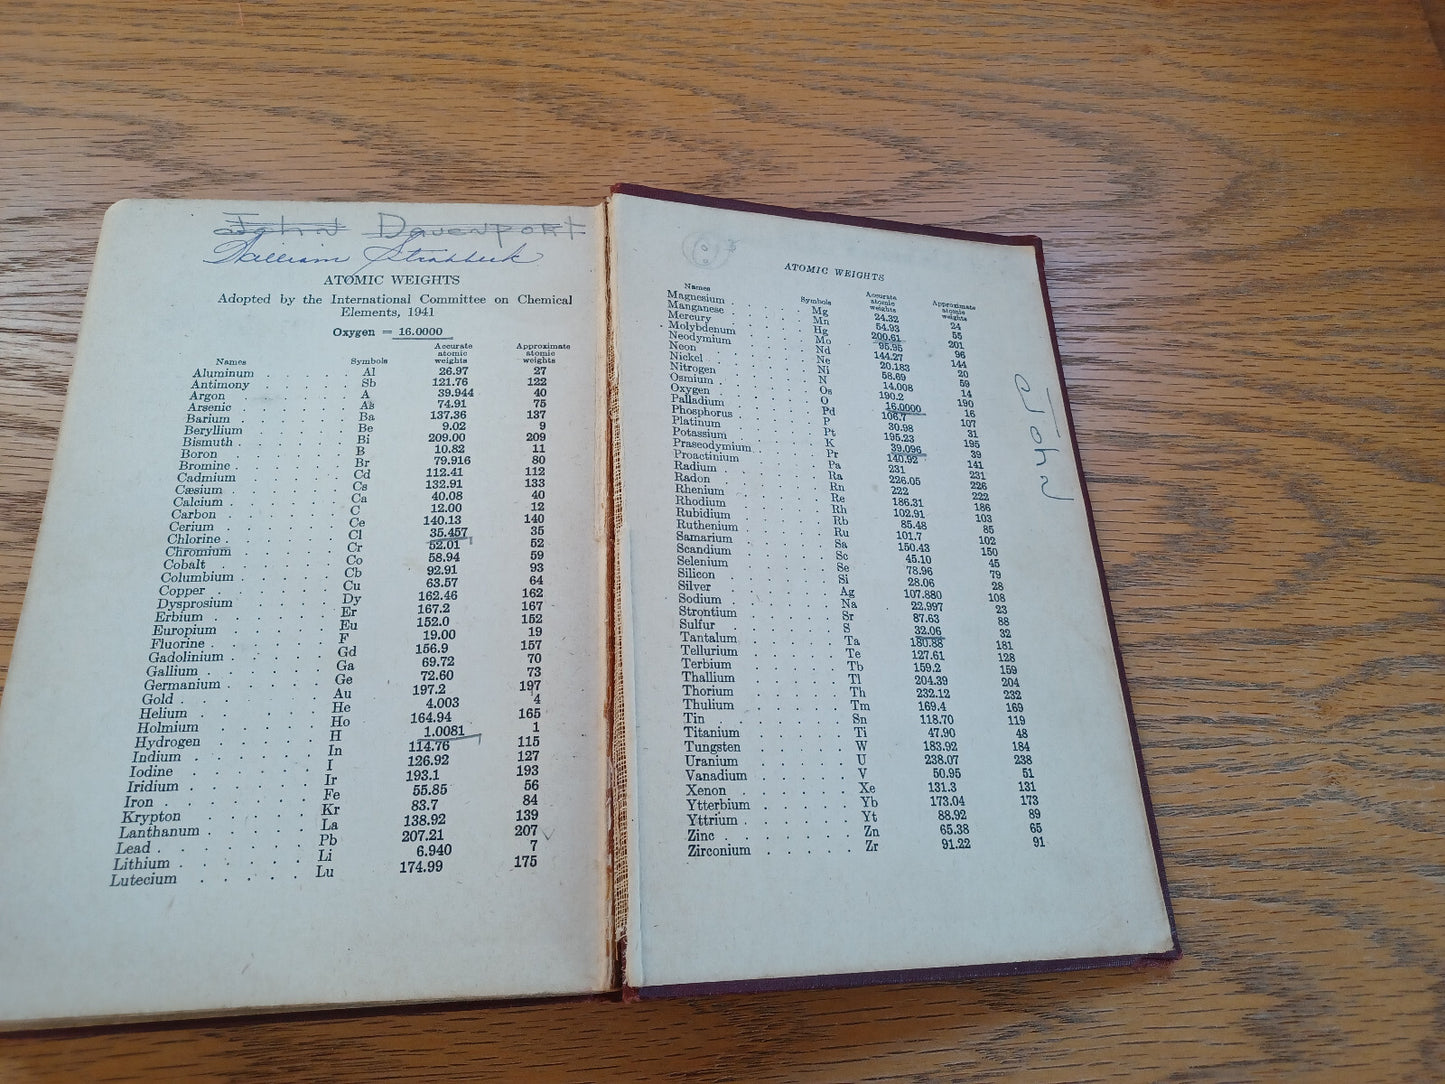 John Davenport
William Strahbuck
ATOMIC WEIGHTS
Adopted by the International Committee on Chemical
Elements, 1941
Oxygen = 16.0000
Names Symbols Accurate atomic weights Approximate atomic weights
Aluminum Al 26.97 27
Antimony Sb 121.76 122
Argon A 39.944 40
Arsenic As 74.91 75
Barium Ba 137.36 137
Beryllium Be 9.02 9
Bismuth Bi 209.00 209
Boron B 10.82 11
Bromine Br 79.916 80
Cadmium Cd 112.41 112
Cæsium Cs 132.91 133
Calcium Ca 40.08 40
Carbon C 12.00 12
Cerium Ce 140.13 140
Chlorine Cl 35.457 35
Chromium Cr 52.01 52
Cobalt Co 58.94 59
Columbium Cb 92.91 93
Copper Cu 63.57 64
Dysprosium Dy 162.46 162
Erbium Er 167.2 167
Europium Eu 152.0 152
Fluorine F 19.00 19
Gadolinium Gd 156.9 157
Gallium Ga 69.72 70
Germanium Ge 72.60 73
Gold Au 197.2 197
Helium He 4.003 4
Holmium Ho 164.94 165
Hydrogen H 1.0081 1
Indium In 114.76 115
Iodine I 126.92 127
Iridium Ir 193.1 193
Iron Fe 55.85 56
Krypton Kr 83.7 84
Lanthanum La 138.92 139
Lead Pb 207.21 207
Lithium Li 6.940 7
Lutecium Lu 174.99 175
ATOMIC WEIGHTS
Names Symbols Accurate atomic weights Approximate atomic weights
Magnesium Mg 24.32 24
Manganese Mn 54.93 55
Mercury Hg 200.61 201
Molybdenum Mo 95.95 96
Neodymium Nd 144.27 144
Neon Ne 20.183 20
Nickel Ni 58.69 59
Nitrogen N 14.008 14
Osmium Os 190.2 190
Oxygen O 16.0000 16
Palladium Pd 106.7 107
Phosphorus P 30.98 31
Platinum Pt 195.23 195
Potassium K 39.096 39
Praseodymium Pr 140.92 141
Proactinium Pa 231 231
Radium Ra 226.05 226
Radon Rn 222 222
Rhenium Re 186.31 186
Rhodium Rh 102.91 103
Rubidium Rb 85.48 85
Ruthenium Ru 101.7 102
Samarium Sa 150.43 150
Scandium Sc 45.10 45
Selenium Se 78.96 79
Silicon Si 28.06 28
Silver Ag 107.880 108
Sodium Na 22.997 23
Strontium Sr 87.63 88
Sulfur S 32.06 32
Tantalum Ta 180.88 181
Tellurium Te 127.61 128
Terbium Tb 159.2 159
Thallium Tl 204.39 204
Thorium Th 232.12 232
Thulium Tm 169.4 169
Tin Sn 118.70 119
Titanium Ti 47.90 48
Tungsten W 183.92 184
Uranium U 238.07 238
Vanadium V 50.95 51
Xenon Xe 131.3 131
Ytterbium Yb 173.04 173
Yttrium Yt 88.92 89
Zinc Zn 65.38 65
Zirconium Zr 91.22 91
John